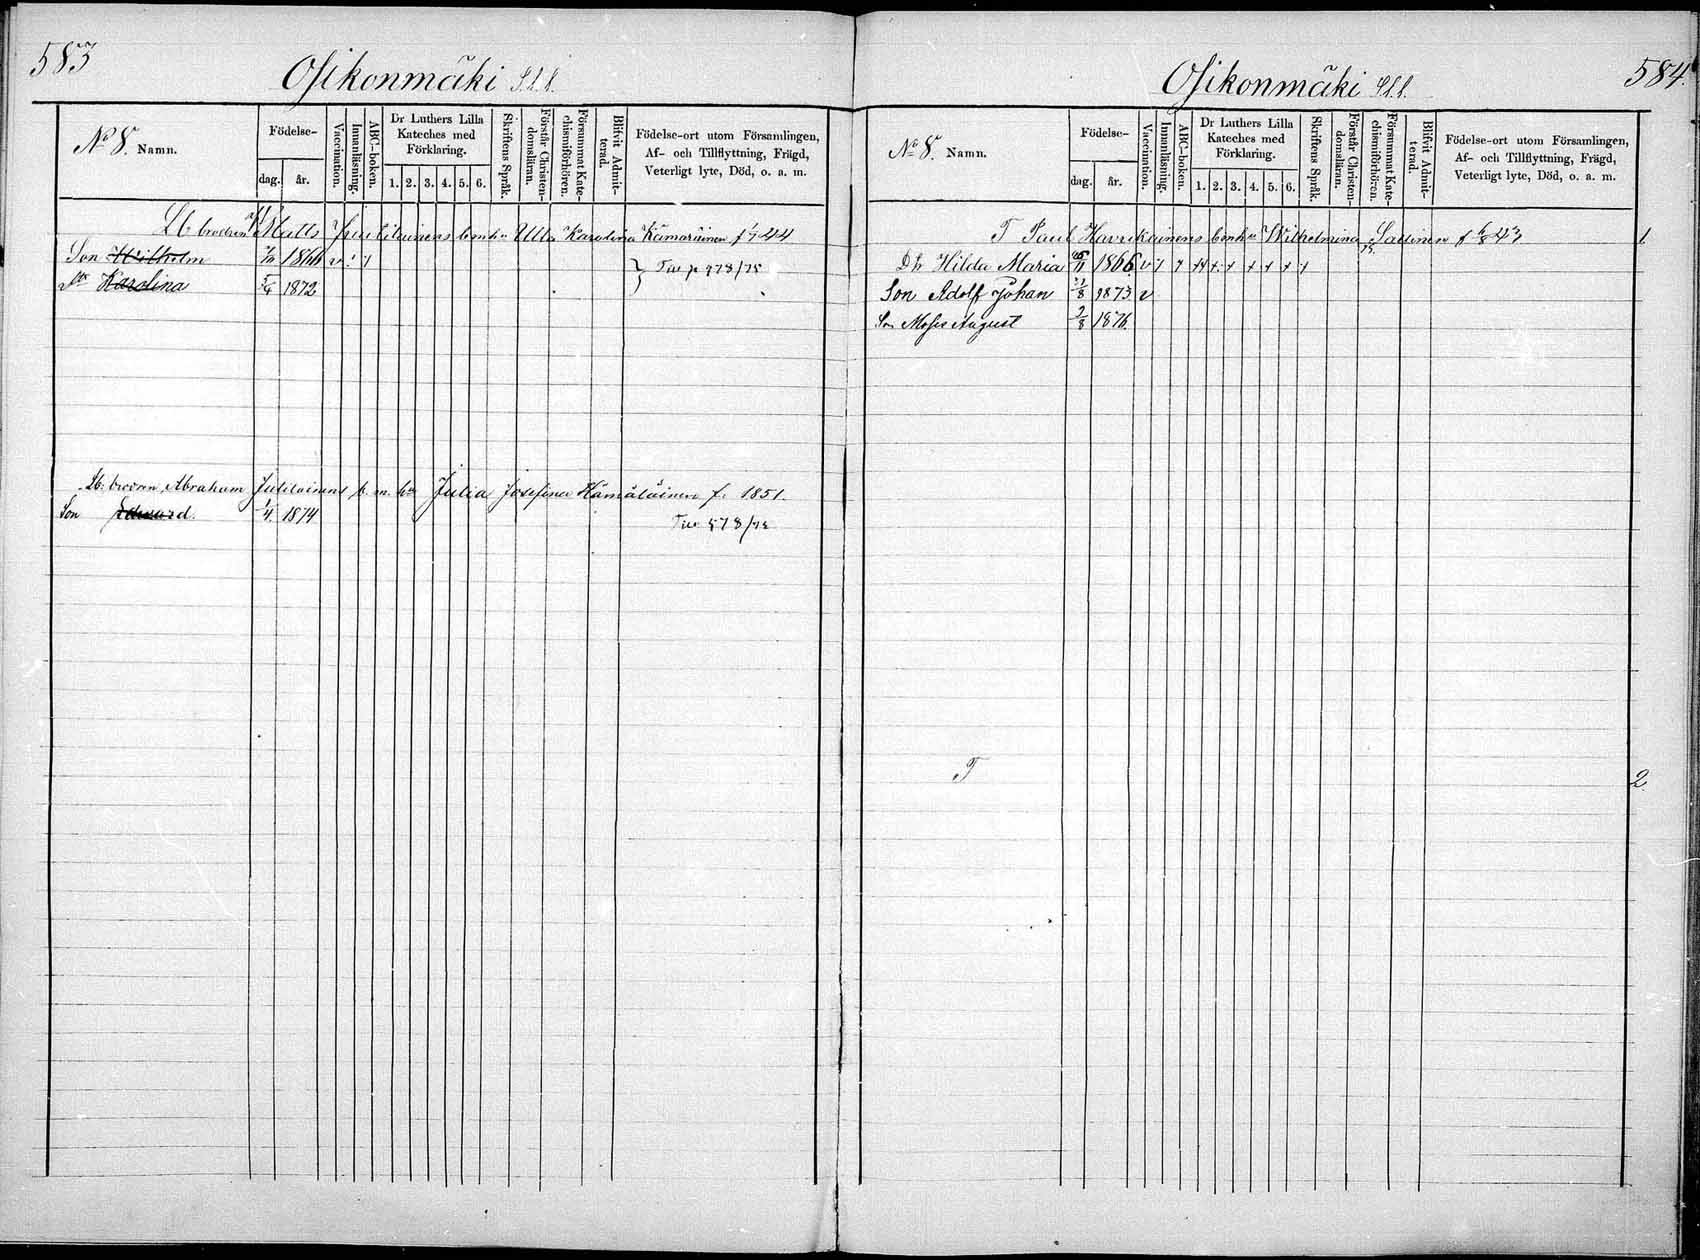 583
Osikonmäki
N:o 8. Namn.
Födelse-
dag. år.
Vaccination.
Innanläsning.
ABC-boken.
Dr Luthers Lilla
Kateches med
Förklaring.
1. 2. 3. 4. 5. 6.
Skriftens Språk.
Förstår Christen-
domsläran.
Försummat Kate-
chismiförhören.
Blifvit Admit-
terad.
Födelse-ort utom Församlingen,
Af- och Tillflyttning, Frägd,
Veterligt lyte, Död, o. a. m.
Matts Ulla Karolina f 44
Son Wilhelm 1866 v
Karolina 1872
Abraham Julia Josefina Hämäläinen f. 1851.
Son Edward. 1874
584
Osikonmäki
N:o 8. Namn.
Födelse-
dag. år.
Vaccination.
Innanläsning.
ABC-boken.
Dr Luthers Lilla
Kateches med
Förklaring.
1. 2. 3. 4. 5. 6.
Skriftens Språk.
Förstår Christen-
domsläran.
Försummat Kate-
chismiförhören.
Blifvit Admit-
terad.
Födelse-ort utom Församlingen,
Af- och Tillflyttning, Frägd,
Veterligt lyte, Död, o. a. m.
T Paul Havukainens Wilhelmina f 43 1
Hilda Maria 1866 v
Son Adolf Johan 31/8 1873 v
Son Moses August 9/8 1876
T 2